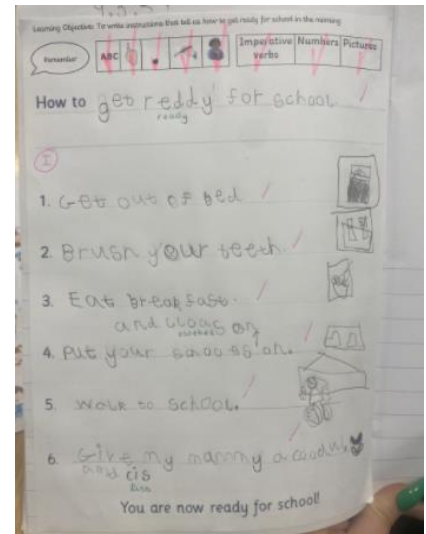 Learning Objective: To write instructions that tell us how to get ready for school in the morning
Remember
ABC
Imperative verbs
Numbers
Pictures
How to get reddy for school
ready
I
1. Get out of bed
2. Brush your teeth.
3. Eat breakfast.
and cloas on
clothes
4. Put your on.
5. Walk to school.
6. Give my mammy a
and cis
kiss
You are now ready for school!